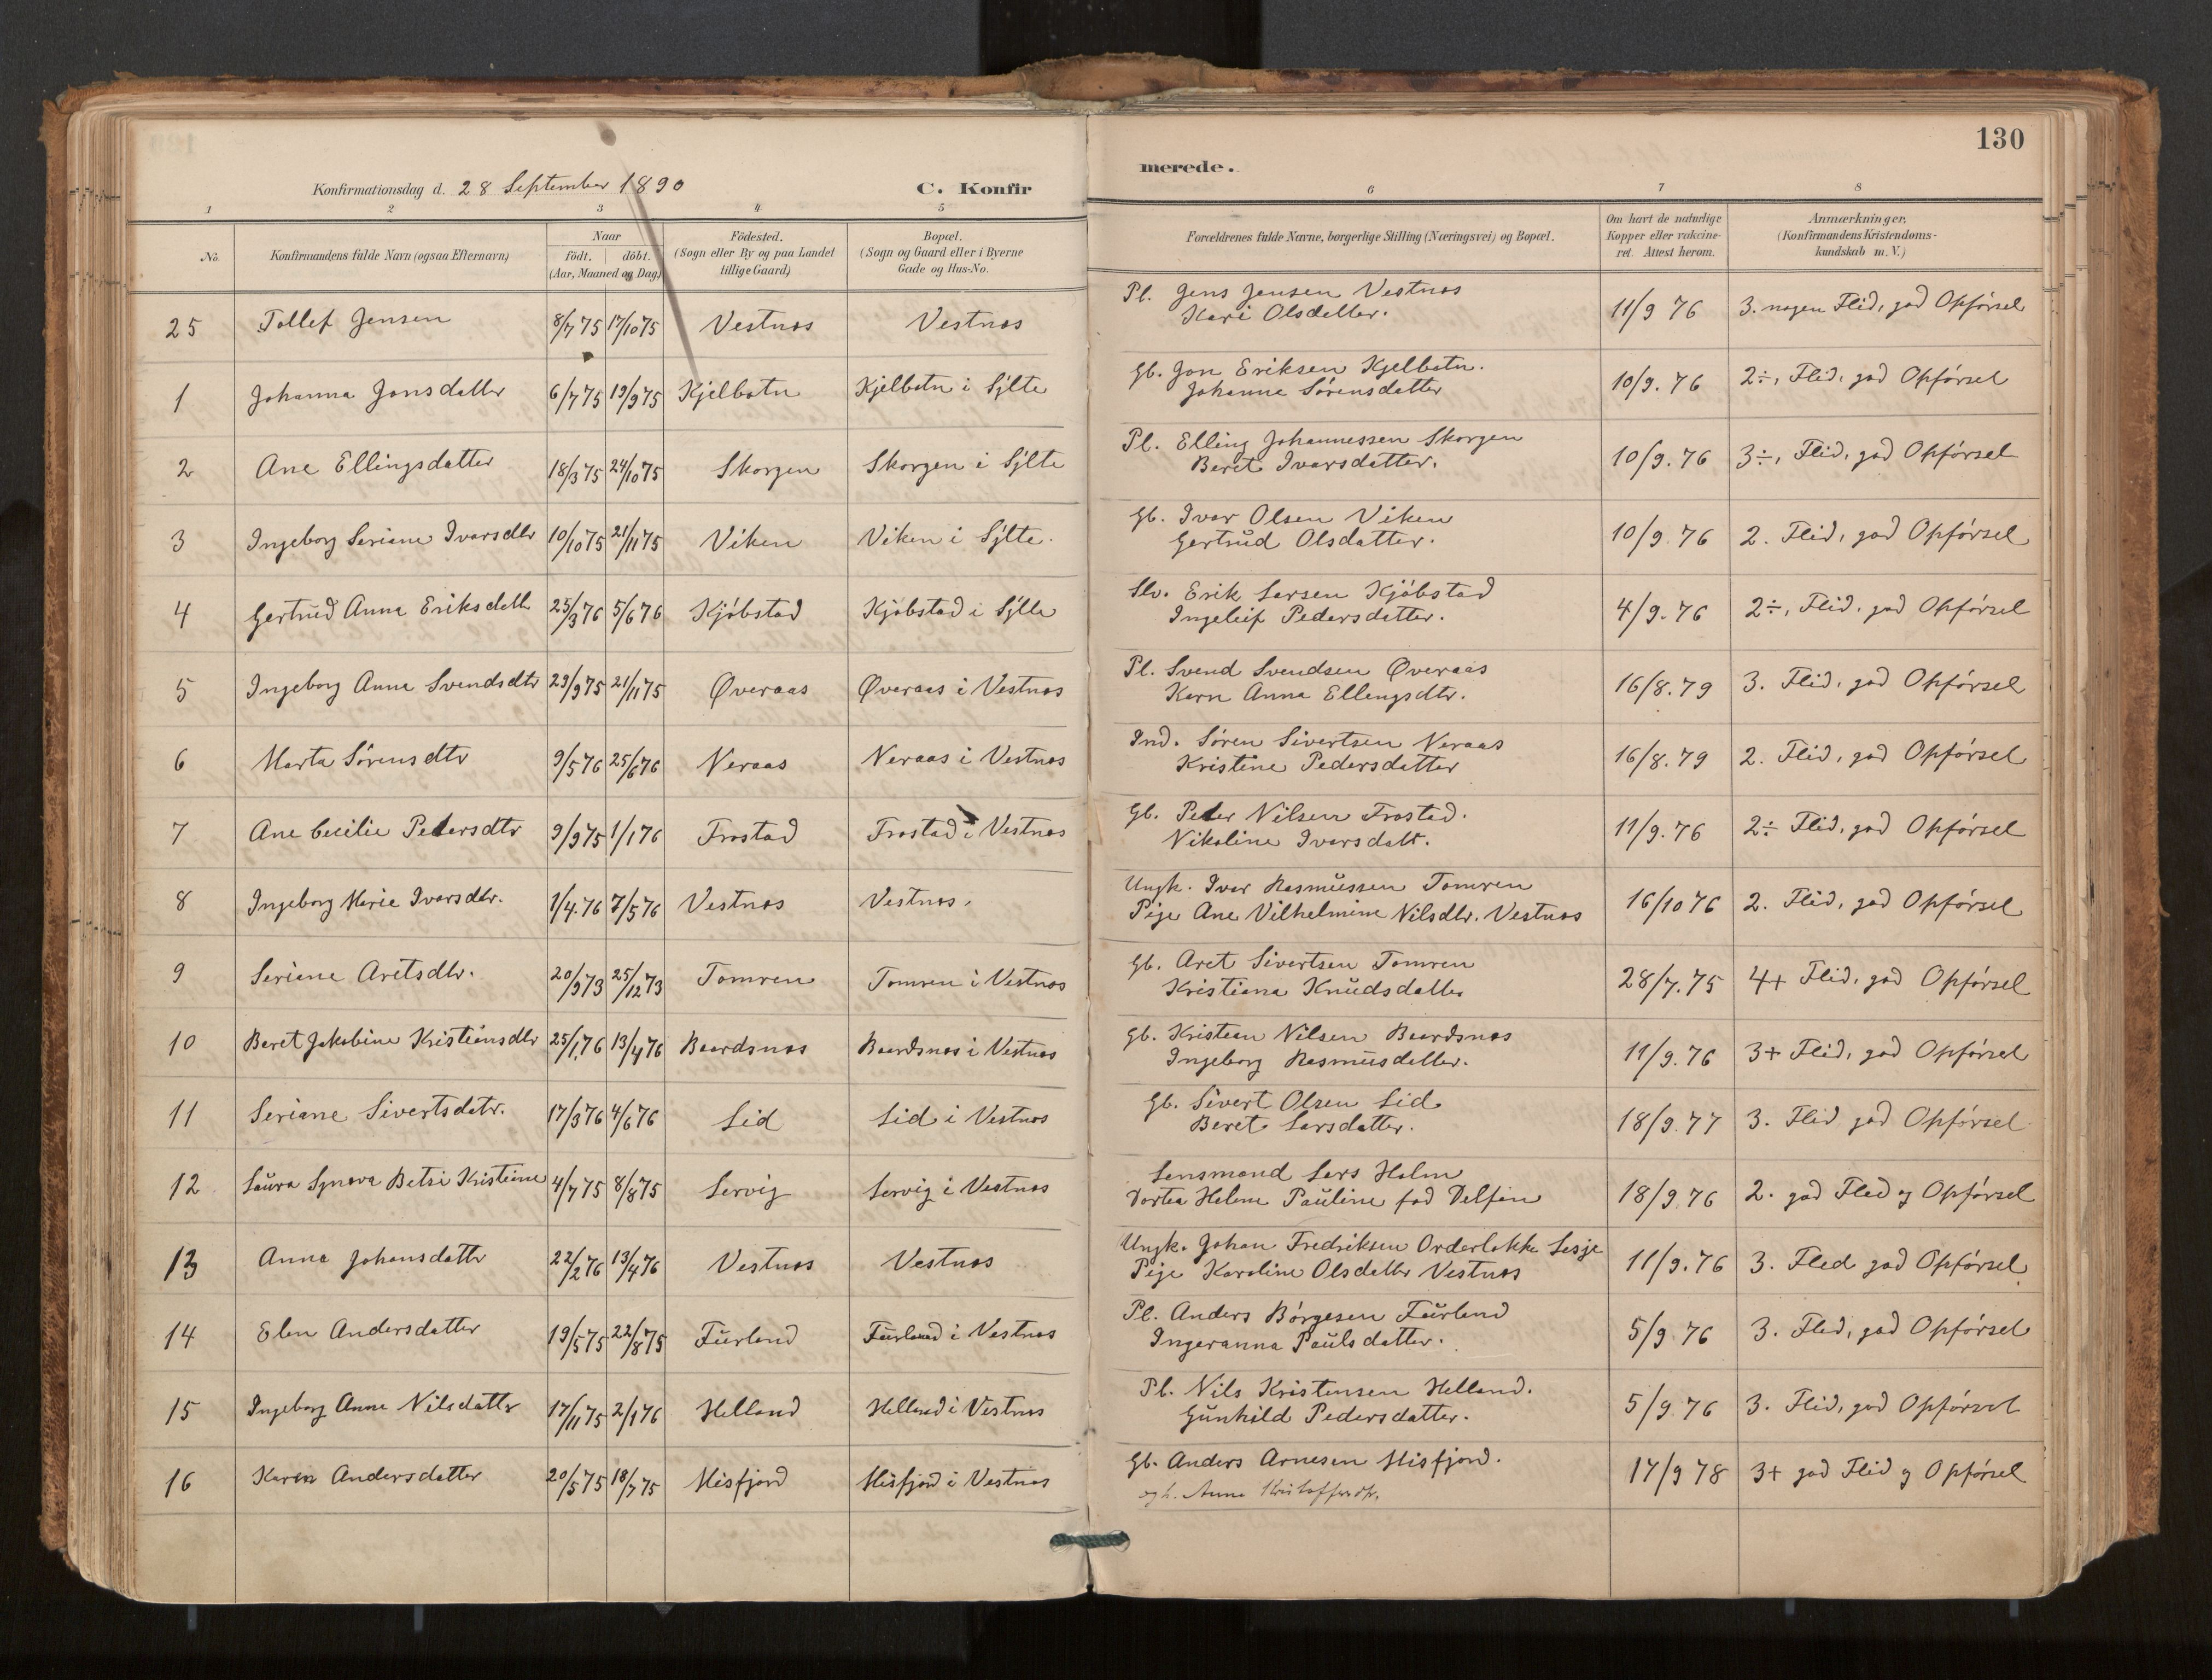 130
Konfirmationsdag d. 28 September 1890 C. Konfirmerede.
1 2 3 4 5 6 7 8
No. Konfirmandens fulde Navn (ogsaa Efternavn) Naar födt. döbt. (Aar, Maaned og Dag) Födested. (Sogn eller By og paa Landet tillige Gaard) Bopæl. (Sogn og Gaard eller i Byerne Gade og Hus-No. Forældrenes fulde Navne, borgerlige Stilling (Næringsvei) og Bopæl. Om havt de naturlige Kopper eller vakcineret. Attest herom. Anmærkninger. (Konfirmandens Kristendomskundskab m. V.)
25 Tollef Jensen 8/7 75 17/10 75 Vestnes Vestnes Pl. Jens Jensen Vestnes
Kari Olsdatter. 11/9 76 3. nogen Flid, god Opförsel
1 Johanna Jonsdatter 6/7 75 19/9 75 Kjelbotn Kjelbotn i Sylte Gb. Jon Eriksen Kjelbotn.
Johanne Sörensdatter 10/9. 76 2÷, Flid, god Opförsel
2 Ane Ellingsdatter 18/3 75 24/10 75 Skorgen Skorgen i Sylte Pl. Elling Johannessen Skorgen
Beret Ivarsdatter. 10/9. 76 3÷, Flid, god Opförsel
3 Ingeborg Seriane Ivarsdtr 10/10 75 21/11 75 Viken Viken i Sylte. Gb. Ivar Olsen Viken
Gertrud Olsdatter. 10/9. 76 2. Flid, god Opförsel
4 Gertrud Anna Eriksdatt 25/3 76 5/6 76 Kjöbstad Kjöbstad i Sylte Slv. Erik Larsen Kjöbstad
Ingeleif Pedersdatter. 4/9. 76 2÷, Flid, god Opförsel
5 Ingeborg Anna Svendsdtr 29/9 75 21/11 75 Øveraas Øveraas i Vestnes Pl. Svend Svendsen Øveraas
Karn Anna Ellengsdtr. 16/8. 79 3. Flid, god Opförsel
6 Marta Sörensdtr 9/5 76 25/6 76 Neraas Neraas i Vestnes Ind. Sören Sivertsen Neraas
Kristine Pedersdatter 16/8. 79 2. Flid, god Opförsel
7 Ane Cecilie Pedersdtr 9/9 75 1/1 76 Frostad Frostad i Vestnes Gb. Peder Nilsen Frostad.
Nikoline Ivarsdatt. 11/9. 76 2÷ Flid, god Opförsel
8 Ingeborg Marie Ivarsdtr. 1/4. 76 7/5 76 Vestnes Vestnes. Ungk. Ivar Rasmussen Tomren
Pige Ane Vilhelmine Nilsdtr. Vestnes 16/10 76 2. Flid, god Opförsel
9 Seriane Aretsdtr. 20/9 73 25/12 73 Tomren Tomren i Vestnes Gb. Aret Sivertsen Tomren
Kristiana Knudsdatter 28/7. 75 4+ Flid, god Opförsel
10 Beret Jakobine Kristiansdtr 25/1 76 13/4 76 Baardsnes Baardsnes i Vestnes Gb. Kristian Nilsen Baardsnes
Ingeborg Rasmusdatter. 11/9. 76 3+ Flid, god Opförsel
11 Seriane Sivertsdatr. 17/3 76 4/6 76 Lid Lid i Vestnes Gb. Sivert Olsen Lid
Beret Larsdatter. 18/9. 77 3. Flid god Opförsel
12 Laura Synova Betsi Kristiane 4/7 75 8/8 75 Servig Servig i Vestnes Lensmand Lars Holm
Dortea Helene Pauline fød Delfin 18/9. 76 2. god Flid og Opförsel
13 Anna Johansdattr 22/2 76 13/4 76 Vestnes Vestnes Ungk. Johan Fredriksen Orderlokke Lesje
Pige Karoline Olsdattr Vestnes 11/9. 76 3. Flid god Opförsel
14 Elen Andersdatter 19/5 75 22/8 75 Furland Furland i Vestnes Pl. Anders Börgesen Furland
Ingeranna Paulsdatter. 5/9 76 3. Flid, god Opförsel
15 Ingeborg Anne Nilsdattr 17/11 75 2/1 76 Helland Helland i Vestnes Pl. Nils Kristensen Helland.
Gunhild Pedersdatter. 5/9. 76 3. Flid, god Opförsel
16 Karen Andersdatter 20/5 75 18/7 75 Misfjord Misfjord i Vestnes Gb. Anders Arnesen Misfjord.
og h. Anne Kristoffersdtr. 17/9 78 3+ god Flid og Opförsel